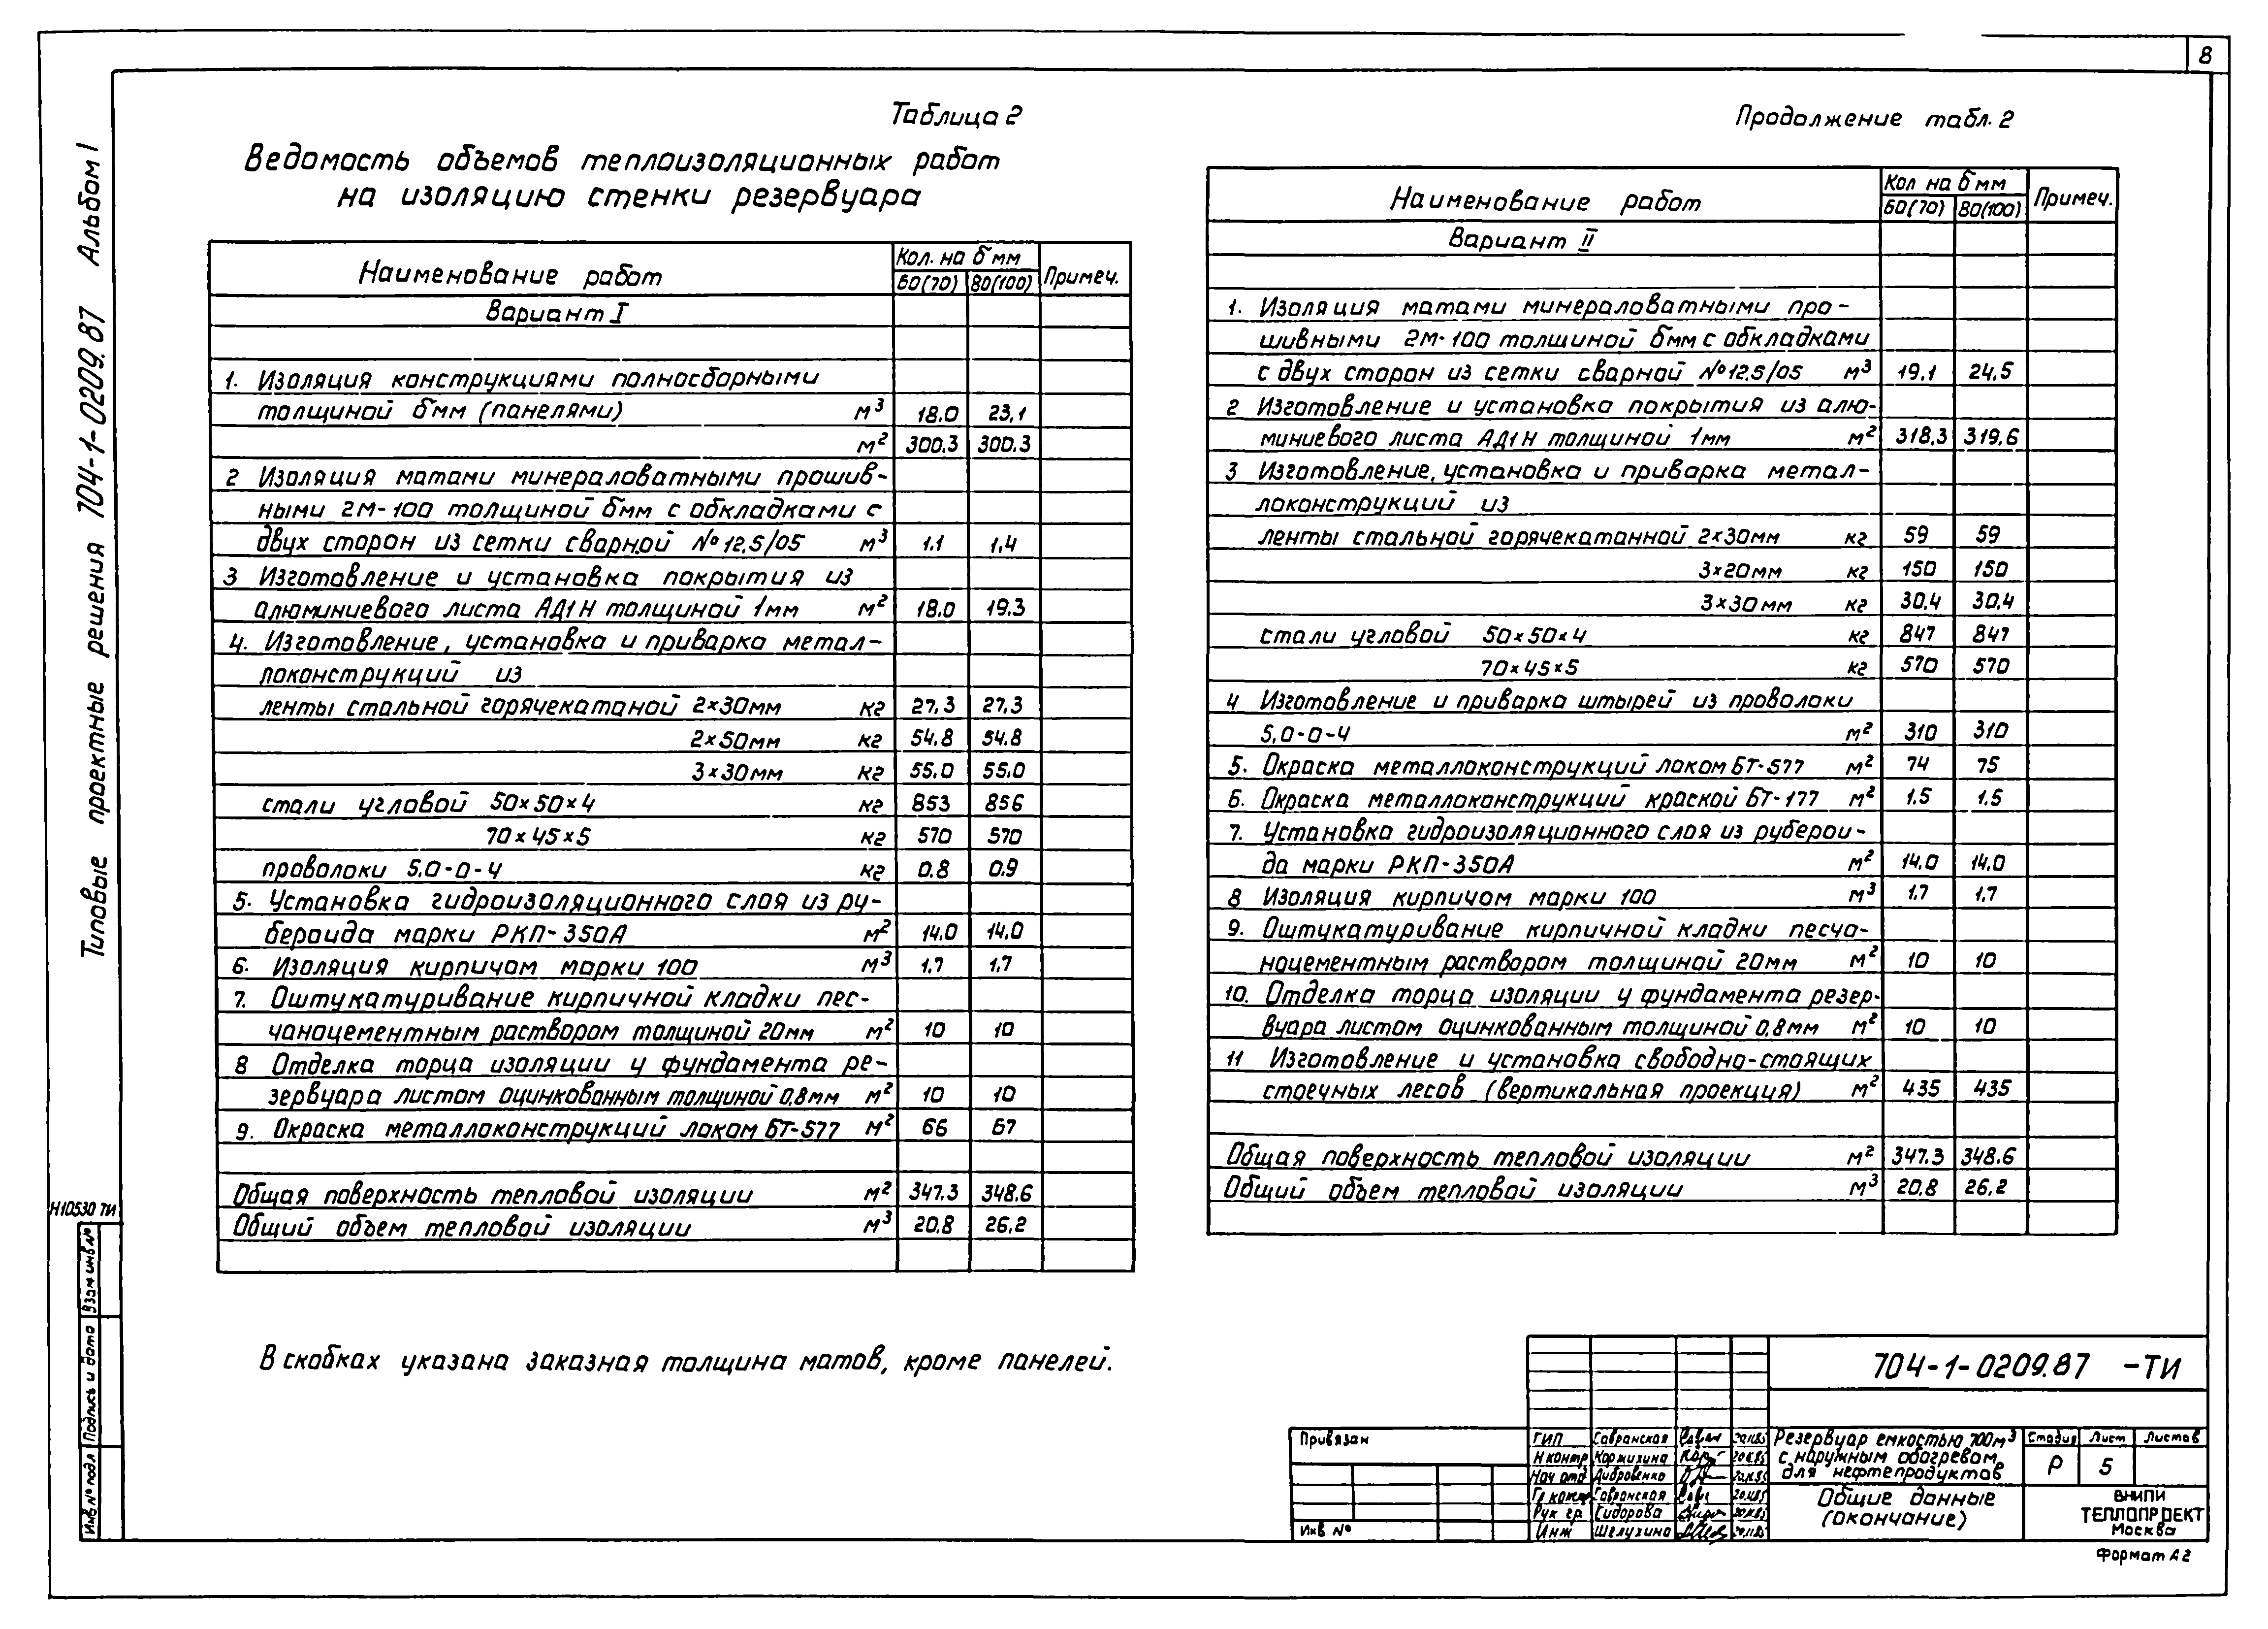 8
Типовые проектные решения 704-1-0209.87 Альбом I
Таблица 2
Ведомость объемов теплоизоляционных работ
на изоляцию стенки резервуара
Наименование работ Кол. на δ мм Примеч.
60(70) 80(100)
Вариант I
1. Изоляция конструкциями полносборными
толщиной δмм (панелями) м³ 18.0 23,1
м² 300.3 300.3
2 Изоляция матами минераловатными прошив-
ными 2М-100 толщиной δмм с обкладками с
двух сторон из сетки сварной №12,5/05 м³ 1.1 1,4
3 Изготовление и установка покрытия из
алюминиевого листа АД1Н толщиной 1мм м² 18.0 19.3
4. Изготовление, установка и приварка метал-
локонструкций из
ленты стальной горячекатаной 2×30мм кг 27.3 27.3
2×50мм кг 54.8 54.8
3×30мм кг 55.0 55.0
стали угловой 50×50×4 кг 853 856
70×45×5 кг 570 570
проволоки 5,0-0-4 кг 0.8 0.9
5. Установка гидроизоляционного слоя из ру-
бероида марки РКП-350А м² 14.0 14.0
6. Изоляция кирпичом марки 100 м³ 1.7 1.7
7. Оштукатуривание кирпичной кладки пес-
чаноцементным раствором толщиной 20мм м² 10 10
8 Отделка торца изоляции у фундамента ре-
зервуара листом оцинкованным толщиной 0,8мм м² 10 10
9. Окраска металлоконструкций лаком БТ-577 м² 66 67
Общая поверхность тепловой изоляции м² 347.3 348.6
Общий объем тепловой изоляции м³ 20.8 26.2
В скобках указана заказная толщина матов, кроме панелей.
Продолжение табл. 2
Наименование работ Кол на δ мм Примеч.
60(70) 80(100)
Вариант II
1. Изоляция матами минераловатными про-
шивными 2М-100 толщиной δмм с обкладками
с двух сторон из сетки сварной №12,5/05 м³ 19.1 24.5
2 Изготовление и установка покрытия из алю-
миниевого листа АД1Н толщиной 1мм м² 318.3 319.6
3 Изготовление, установка и приварка метал-
локонструкций из
ленты стальной горячекатанной 2×30мм кг 59 59
3×20мм кг 150 150
3×30мм кг 30.4 30.4
стали угловой 50×50×4 кг 847 847
70×45×5 кг 570 570
4 Изготовление и приварка штырей из проволоки
5,0-0-4 м² 310 310
5. Окраска металлоконструкций лаком БТ-577 м² 74 75
6. Окраска металлоконструкций краской БТ-177 м² 1.5 1.5
7. Установка гидроизоляционного слоя из руберои-
да марки РКП-350А м² 14.0 14.0
8 Изоляция кирпичом марки 100 м³ 1.7 1.7
9. Оштукатуривание кирпичной кладки песча-
ноцементным раствором толщиной 20мм м² 10 10
10. Отделка торца изоляции у фундамента резер-
вуара листом оцинкованным толщиной 0,8мм м² 10 10
11 Изготовление и установка свободно-стоящих
стоечных лесов (вертикальная проекция) м² 435 435
Общая поверхность тепловой изоляции м² 347.3 348.6
Общий объем тепловой изоляции м³ 20.8 26.2
Н10530 ТИ
Взам инв №
Подпись и дата
Инв № подл
704-1-0209.87 -ТИ
Привязан
Инв №
ГИП Савранская 20.11.85
Н контр Кормихина 20.11.85
Нач отд Дибровенко 20.11.85
Савранская 20.11.85
Рук гр Сидорова 20.11.85
Инж Шелухина 20.11.85
Резервуар емкостью 700м³
с наружным обогревом,
для нефтепродуктов
Стадия Лист Листов
Р 5
Общие данные
(окончание)
ВНИПИ
ТЕПЛОПРОЕКТ
Москва
Формат А2